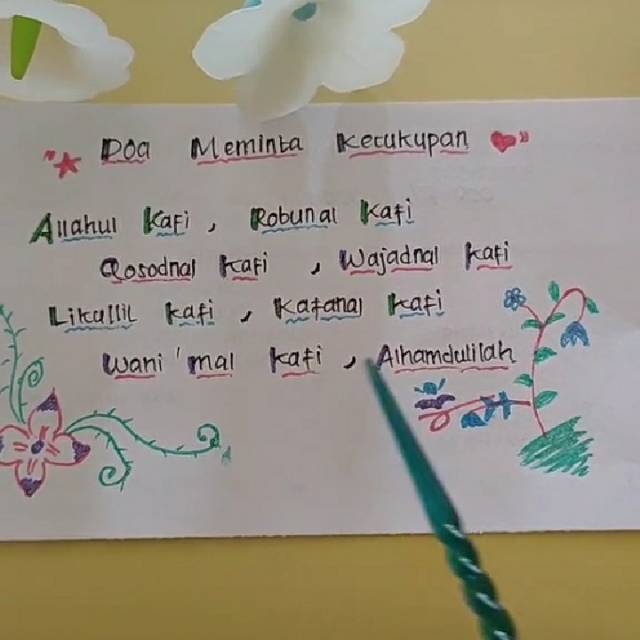 "★ Doa Meminta Kecukupan ♥"
Allahul Kafi , Robunal Kafi
Qosodnal Kafi , Wajadnal Kafi
Likullil Kafi , Kafanal Kafi
Wani'mal Kafi , Alhamdulilah